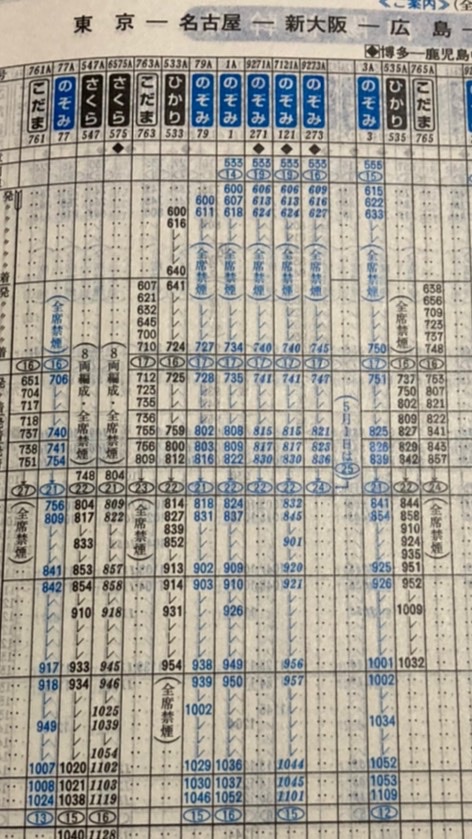 ≪ご案内≫(全
東京―名古屋―新大阪―広島―
◆博多―鹿児島
号 761A 77A 547A 6575A 763A 533A 79A 1A 9271A 7121A 9273A 3A 535A 765A
こだま のぞみ さくら さくら こだま ひかり のぞみ のぞみ のぞみ のぞみ のぞみ のぞみ ひかり こだま
761 77 547 575 763 533 79 1 271 121 273 3 535 765
◆ ◆ ◆ ◆
533 533 533 533 555
⑭ ⑲ ⑲ ⑯ ⑮
600 606 606 609 615
600 607 613 613 616 622
600 611 618 624 624 627 633
616
640
発 607 641 638
621 656
632 709
645 723
700 737
着 710 724 727 734 740 740 745 750 748
全席禁煙 全席禁煙 全席禁煙 全席禁煙 全席禁煙 全席禁煙 全席禁煙 全席禁煙
⑯ ⑯ ⑰ ⑯ ⑰ ⑰ ⑰ ⑰ ⑰ ⑰ ⑯ ⑯
8両編成・全席禁煙 8両編成・全席禁煙
651 706 712 725 728 735 741 741 747 751 737
704 723 750 807
717 735 802 821
5月1日は㉕
718 736 809 822
737 740 755 759 802 808 815 815 821 825 827 841
738 741 756 800 803 809 817 817 823 826 829 843
751 754 809 812 816 822 830 830 836 839 842 857
748 804
㉗ ㉑ ㉒ ㉑ ㉓ ㉒ ㉑ ㉑ ㉒ ㉒ ㉔ ㉑ ㉒ ㉔
全席禁煙 全席禁煙 全席禁煙
756 804 809 814 818 824 832 841 844
809 817 822 827 831 837 845 854 858
839 910
833 852 901 924
935
841 853 857 913 902 909 920 925 951
842 854 858 914 903 910 921 926 952
910 918 931 926 1009
917 933 945 954 938 949 956 1001 1032
918 934 946 939 950 957 1002
全席禁煙
1025 1002
949 1039 1034
1054
1007 1020 1102 1029 1036 1044 1052
1008 1021 1103 1030 1037 1045 1053
1024 1038 1119 1046 1052 1101 1109
⑬ ⑮ ⑯ ⑮ ⑯ ⑮ ⑫
1040 1128